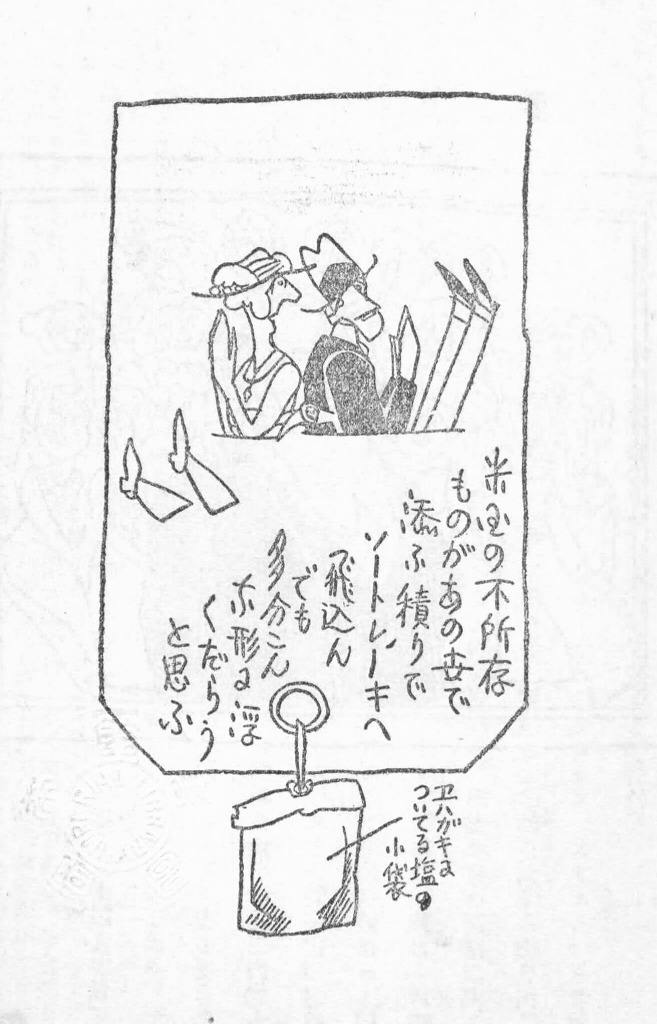 米国の不所存
ものがあの世で
添ふ積りで
ソートレーキへ
飛込ん
でも
多分こん
な形に浮
くだらう
と思ふ
エハガキに
ついてる塩の
小袋